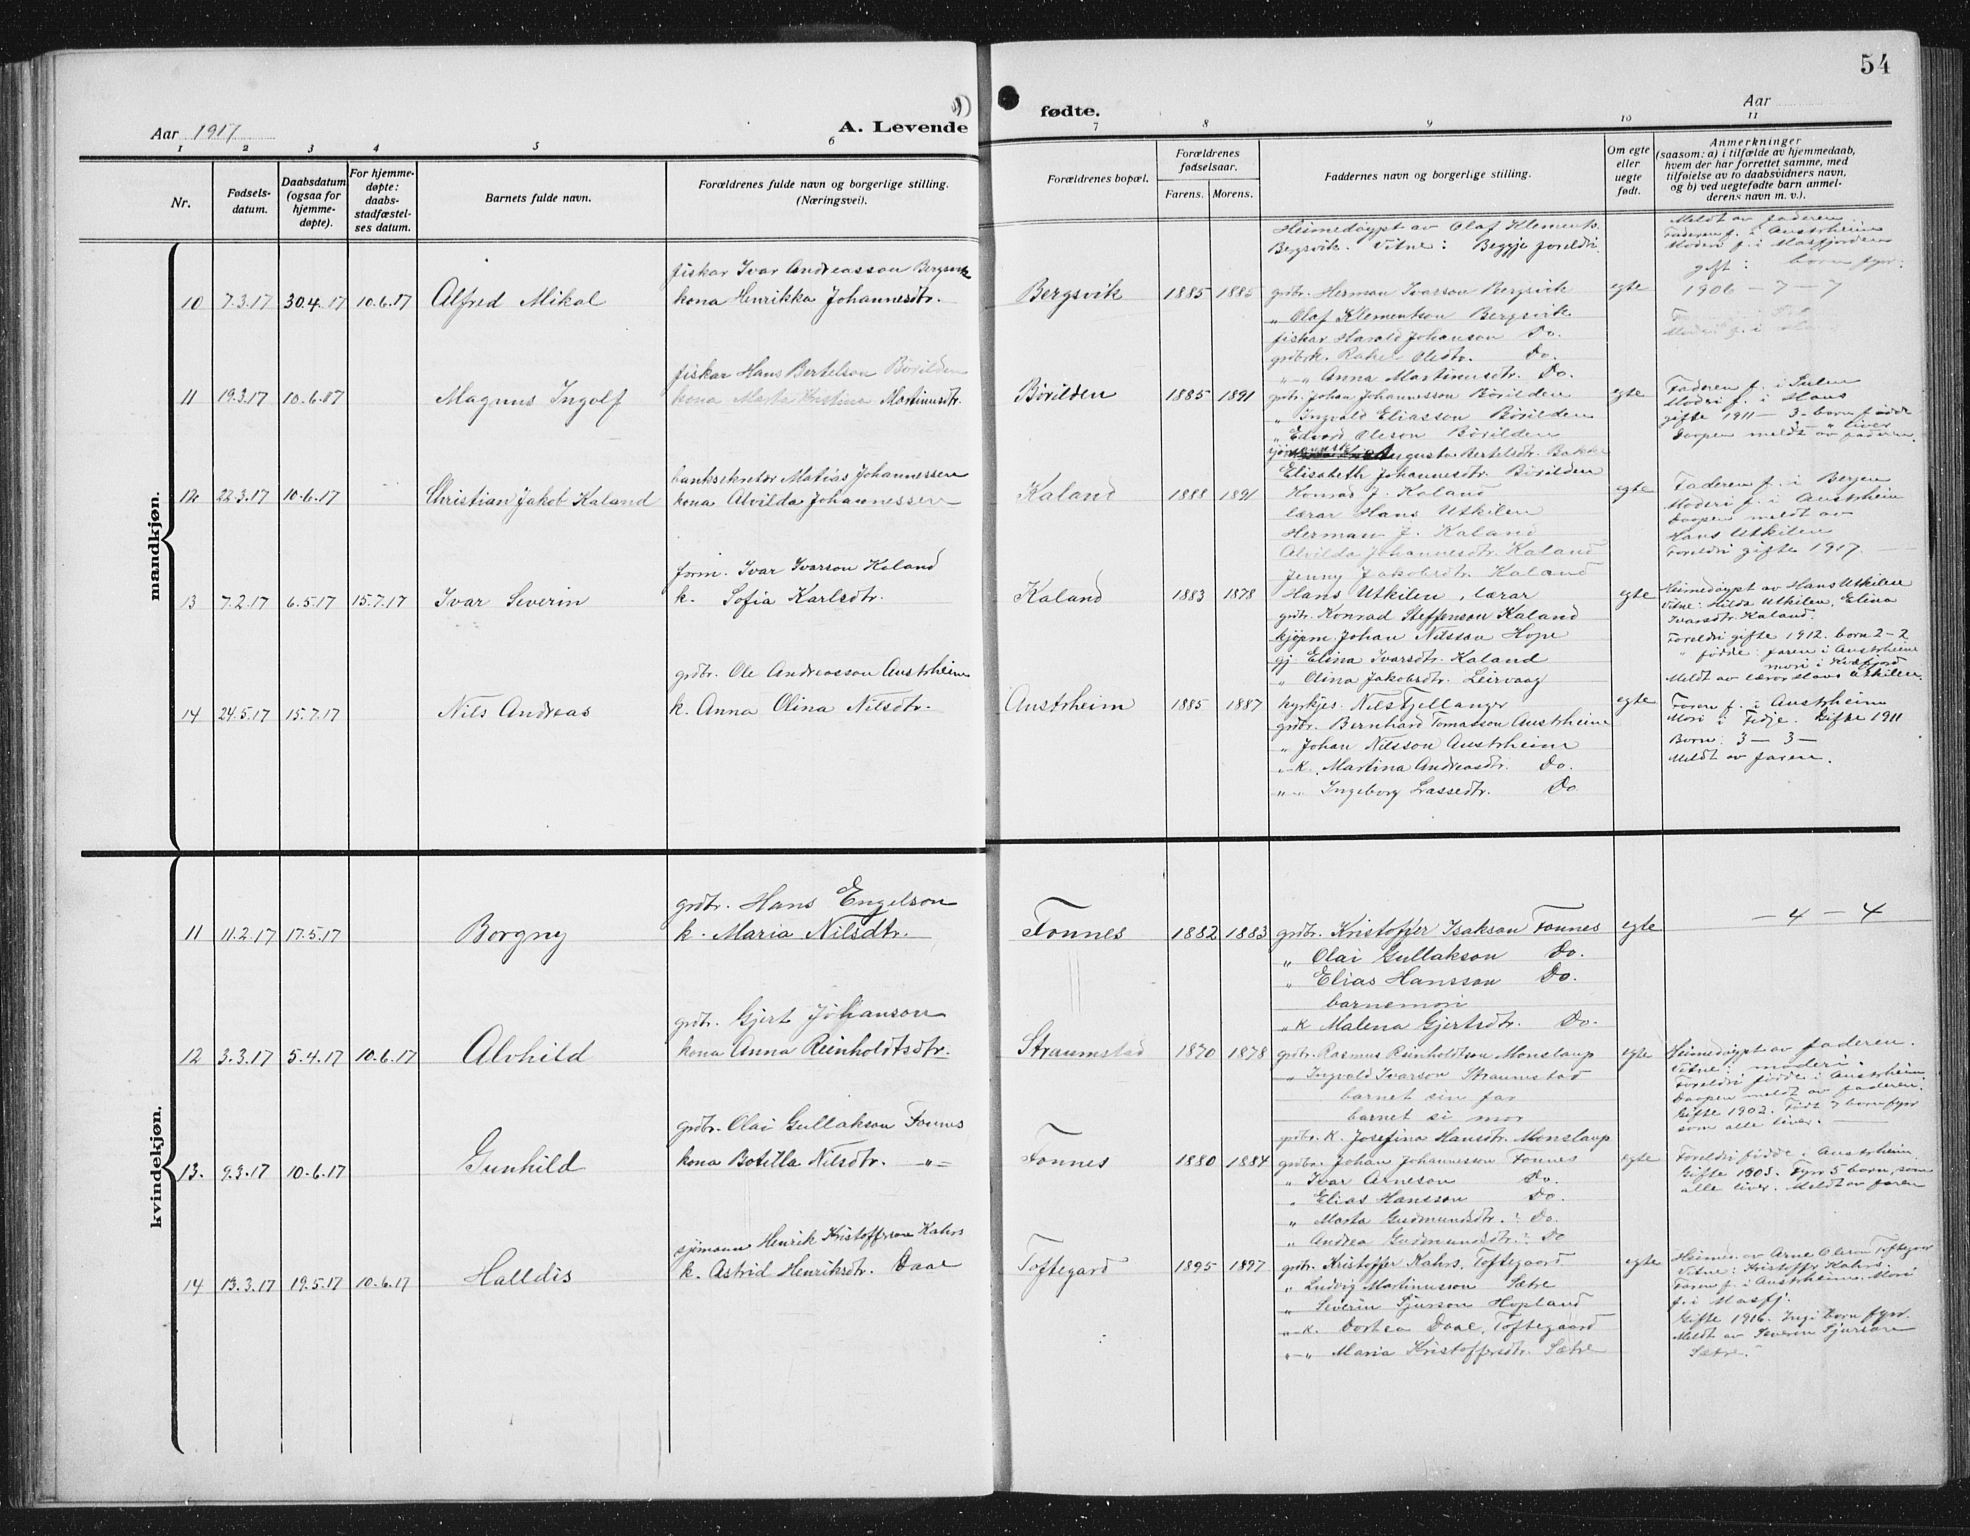 54
Aar 1917
A. Levende
fødte.
Aar
1 2 3 4 5 6 7 8 9 10 11
Nr.
Fødsels-
datum.
Daabsdatum
(ogsaa for
hjemme-
døpte).
For hjemme-
døpte:
daabs-
stadfæstel-
ses datum.
Barnets fulde navn.
Forældrenes fulde navn og borgerlige stilling.
(Næringsvei).
Forældrenes bopæl.
Forældrenes
fødselsaar.
Farens. Morens.
Faddernes navn og borgerlige stilling.
Om egte
eller
uegte
født.
Anmerkninger
(saasom: a) i tilfælde av hjemmedaab,
hvem der har forrettet samme, med
tilføielse av to daabsvidners navn,
og b) ved uegtefødte barn anmel-
derens navn m. v.).
mandkjøn.
10 7.3.17 30.4.17 10.6.17 Alfred Mikal
fiskar Ivar Andreasson Bergsvik
kona Henrikka Johannesdtr.
Bergsvik 1885 1885
Heimedøypt av Olaf Klements.
Bergsvik. Vitne: Beggje foreldri
grdbr. Herman Ivarson Bergsvik
„ Olaf Klementson Bergsvik
fiskar Harald Johanson Do.
grdbrk. Rakel Olsdtr. Do.
„ „ Anna Martinusdtr. Do.
egte
Meldt av faderen
Faderen f. i Austrheim
Moderi f. i Masfjorden
gift: born fyrr:
1906 – 7 – 7
11 19.3.17 10.6.17 Magnus Ingolf
fiskar Hans Bertelson Börilden
kona Marta Kristina Martinusdtr.
Börilden 1885 1891
grdbr. Johan Johannesson Börilden
„ Ingvald Eliasson Börilden
„ Edvard Oleson Börilden
Augusta Bertelsdtr. Bakke
Elisabeth Johannesdtr. Börilden
egte
Faderen f. i Sulen
Moderi f. i Hans
gifte 1911 – 3 born fødde
3 – „ liver
Daapen meldt av faderen.
12 22.3.17 10.6.17 Christian Jakob Kaland
banksekretær Matias Johannessen
kona Alvilda Johannessen
Kaland 1888 1891
Konrad J. Kaland
lærar Hans Utkilen
Herman J. Kaland
Alvilda Johannesdtr. Kaland
Jenny Jakobsdtr. Kaland
egte
Faderen f. i Bergen
Moderi f. i Austrheim
Daapen meldt av
Hans Utkilen
Foreldri gifte 1917.
13 7.2.17 6.5.17 15.7.17 Ivar Severin
form. Ivar Ivarson Kaland
k. Sofia Karlsdtr.
Kaland 1883 1878
Hans Utkilen, lærar
grdbr. Konrad Steffenson Kaland
kjøpm. Johan Nilsson Hope
gj Elina Ivarsdtr. Kaland
„ Olina Jakobsdtr. Leirvaag
egte
Heimedøypt av Hans Utkilen
Vitne: Hilda Utkilen, Elina
Ivarsdtr. Kaland.
Foreldri gifte 1912. born 2 – 2
„ fødde: faren i Austrheim
mori i
Meldt av lærar Hans Utkilen.
14 24.5.17 15.7.17 Nils Andreas
grdbr. Ole Andreasson Austrheim
k. Anna Olina Nilsdtr.
Austrheim 1885 1887
kyrkjes. Nils Fjellanger
grdbr. Bernhard Tomasson Austrheim
„ Johan Nilsson Austrheim
„ K. Martina Andreasdtr. Do.
„ „ Ingeborg Lassedtr. Do
egte
Faren f. i Austrheim
Mori i Fedje. Gifte 1911
Born: 3 – 3 –
Meldt av faren.
kvindekjøn.
11 11.2.17 17.5.17 Borgny
grdbr. Hans Engelson
k. Maria Nilsdtr.
Fonnes 1882 1883
grdbr. Kristoffer Isakson Fonnes
„ Olai Gullakson Do.
„ Elias Hansson Do.
barnemori
„ K Malena Gjertsdtr. Do.
egte
– 4 – 4
12 3.3.17 5.4.17 10.6.17 Alvhild
grdbr. Gjert Johanson
kona Anna Reinholdtsdtr.
Straumstad 1870 1878
grdbr. Rasmus Reinholdtson Monslaup
„ Ingvald Ivarson Straumstad
barnet sin far
barnet si mor
grdbr. K. Josefina Hansdtr. Monslaup
egte
Heimedøypt av faderen.
Vitne: moderi.
Foreldri fødde i Austrheim
Daapen meldt av faderen.
Gifte 1902. Født 7 born fyrr
som alle liver.
13. 9.3.17 10.6.17 Gunhild
grdbr. Olai Gullakson Fonnes
kona Botilla Nilsdtr. –„–
Fonnes 1880 1884
grdbr. Johan Johannesson Fonnes
„ Ivar Arneson Do.
„ Elias Hansson Do.
„ Marta Gudmundsdtr. Do.
„ Andrea Gudmundsdtr. Do
egte
Foreldri fødde i Austrheim.
Gifte 1905. Fyrr 5 born, som
alle liver. Meldt av faren
14 13.3.17 19.5.17 10.6.17 Halldis
sjømann Henrik Kristofferson Kahrs
k. Astrid Henriksdtr. Daae
Toftegard 1895 1897
grdbr. Kristoffer Kahrs, Toftegaard
„ Ludvig Martinusson Sætre
„ Severin Sjurson Hopland
„ K. Dortea Daae, Toftegaard
„ – „ Maria Kristoffersdtr. Sætre
egte
Heimed. av Arne Oleson Toftegard
Vitne: Kristoffr Kahrs.
Faren f. i Austrheim. Mori
f. i Masfj.
Gifte 1916. Ingi born fyrr.
Meldt av Severin Sjurson
Sætre.